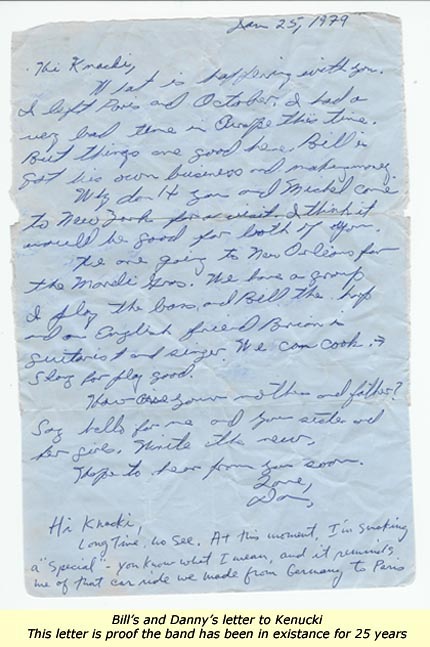 Jan 25, 1979
Hi Knacki,
What is happening with you.
I left Paris and October. I had a
very bad time in Europe this time.
But things are good here. Bill is
got his own business and making money.
Why don't you and Michel come
to New York for a visit. I think it
would be good for both of you.
We are going to New Orleans for
the Mardi Gras. We have a group
I play the bass, and Bill the harp
and an English friend Brian is
guitarist and singer. We can cook →
play good.
How are your mother and father?
Say hello for me and your sister and
her girls. Write the news,
I hope to hear from you soon.
Love,
Dan,
Hi Knacki,
Long time, no see. At this moment, I'm smoking
a "special" - you know what I mean, and it reminds
me of that car ride we made from Germany to Paris
Bill's and Danny's letter to Kenucki
This letter is proof the band has been in existance for 25 years